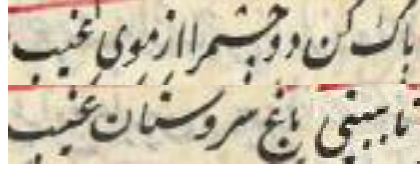 پاک کن دو چشم را از موی عیب
تا ببینی باغ سروستان غیب